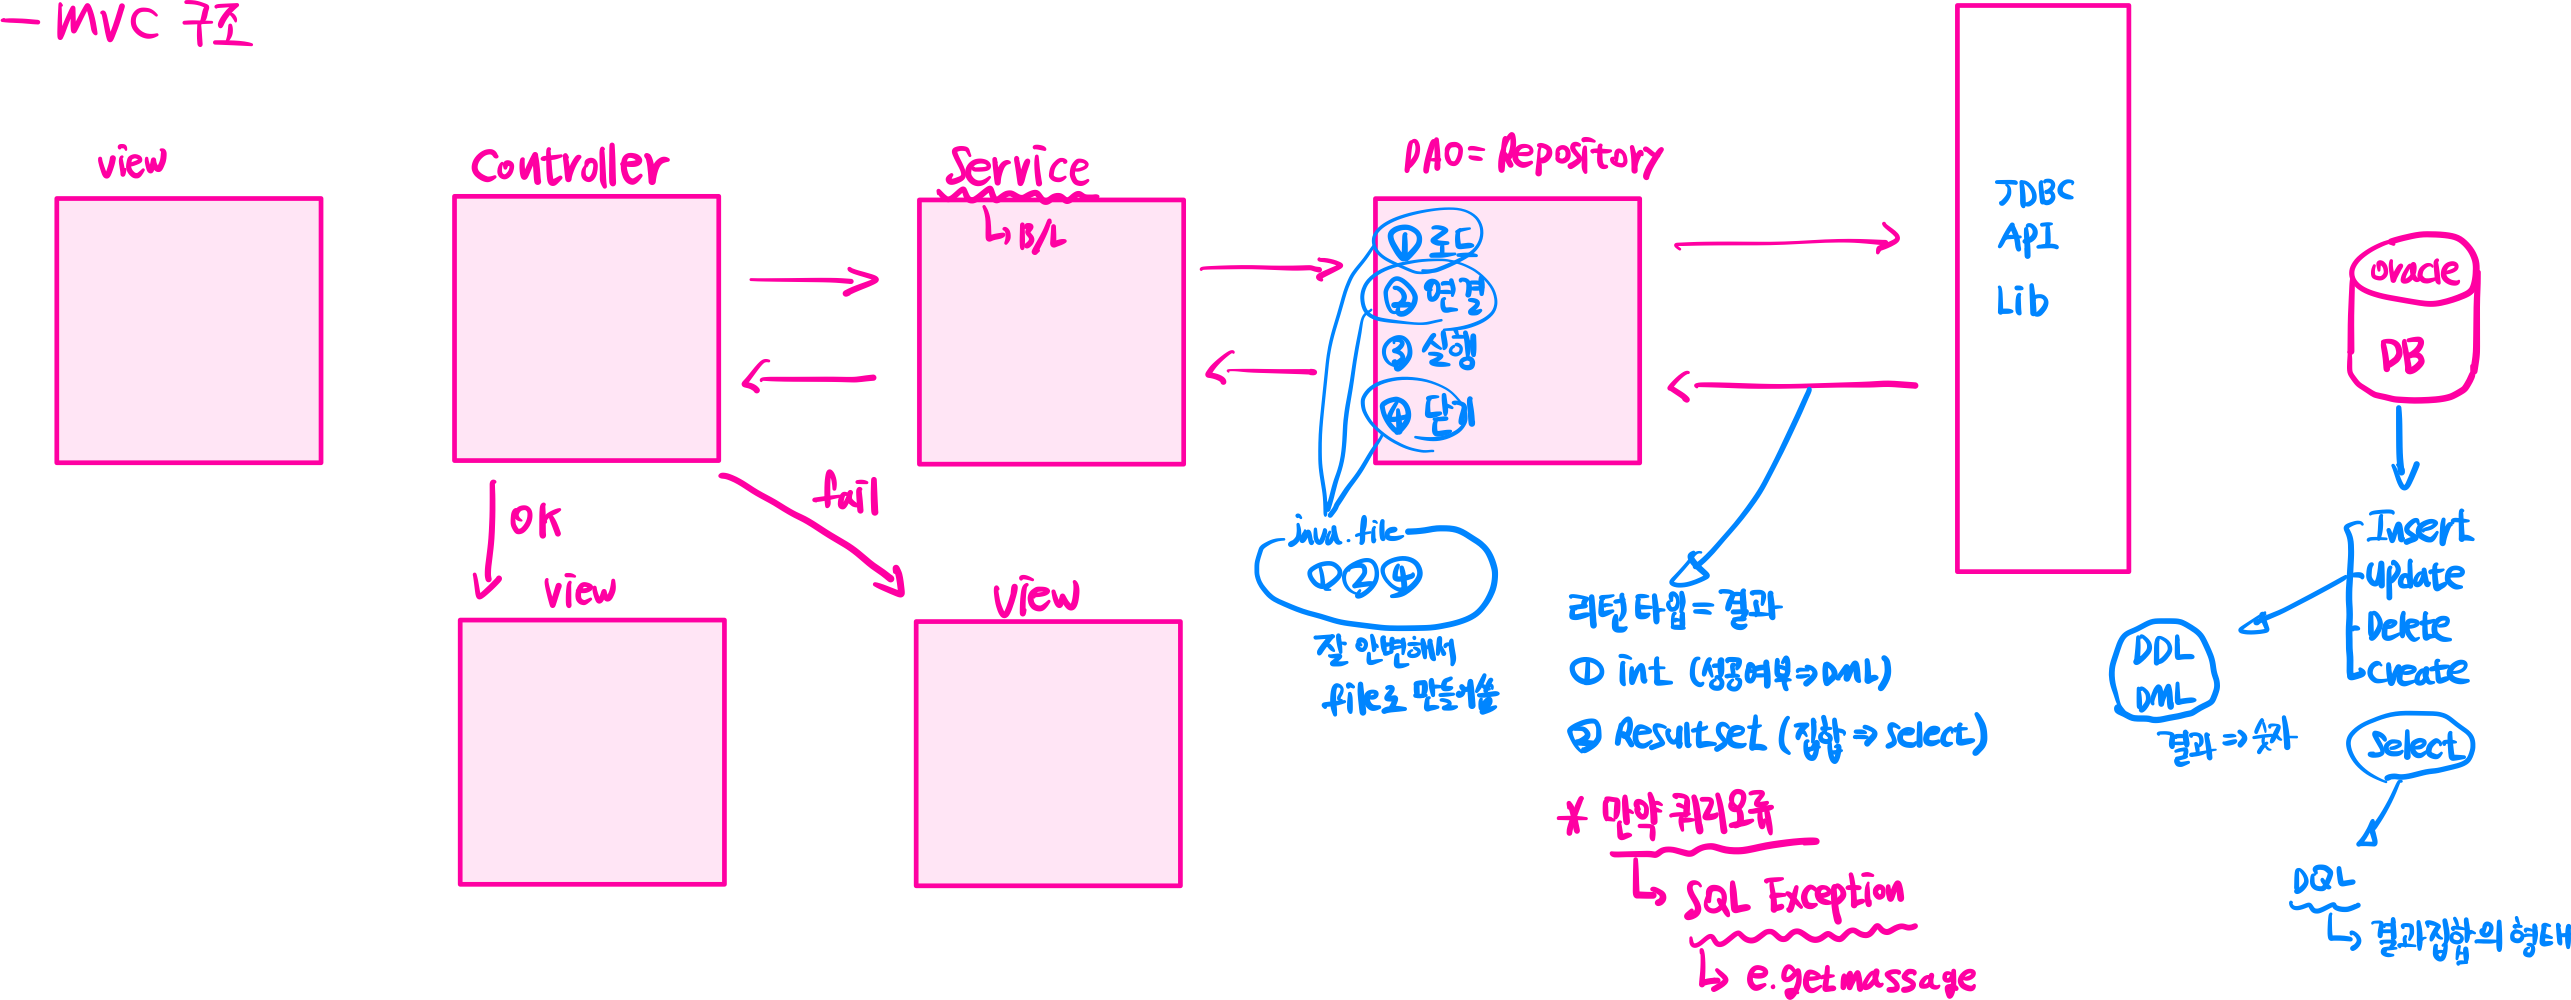 - MVC 구조
view
Controller
Service
↳ B/L
DAO = Repository
① 로드
② 연결
③ 실행
④ 닫기
JDBC
API
Lib
oracle
DB
OK
fail
view
view
java.file
①②④
잘 안변해서
file로 만들어씀
리턴 타입 = 결과
① int (성공여부 => DML)
② Resultset (집합 => select)
* 만약 쿼리오류
↳ SQL Exception
↳ e.getmassage
Insert
update
Delete
create
DDL
DML
결과 => 숫자
select
DQL
↳ 결과집합의 형태